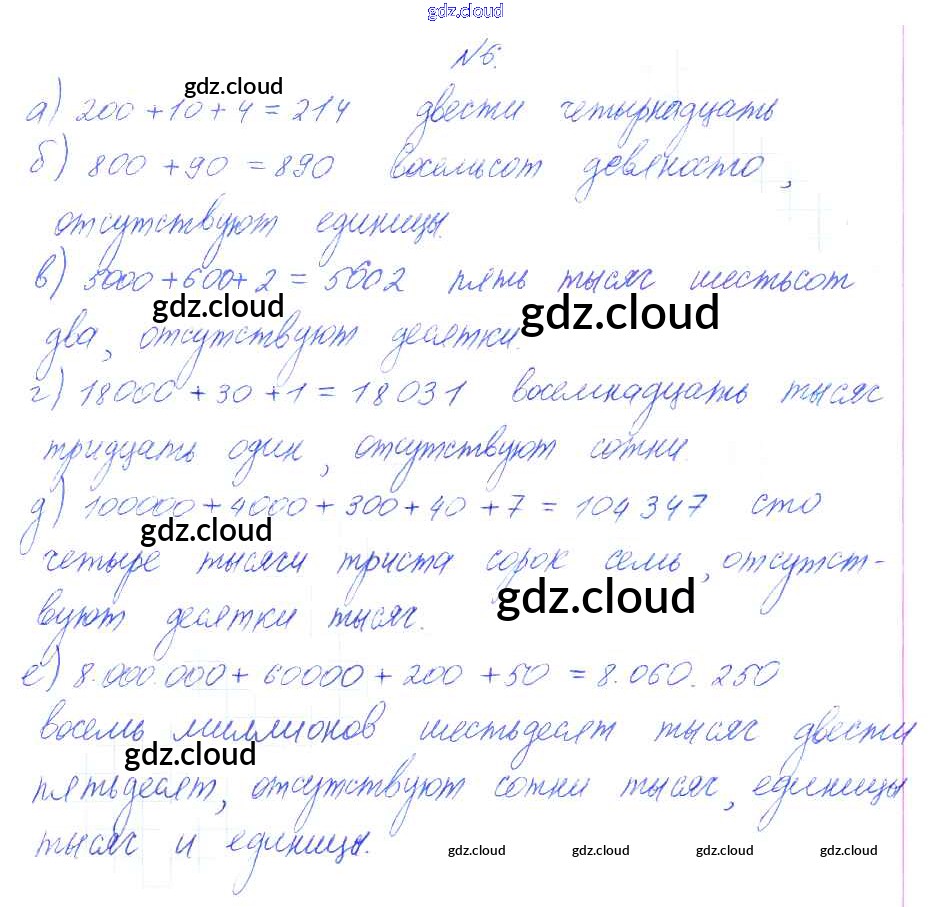 gdz.cloud
№6.
gdz.cloud
а) 200 + 10 + 4 = 214 двести четырнадцать
б) 800 + 90 = 890 восемьсот девяносто,
отсутствуют единицы.
в) 5000 + 600 + 2 = 5602 пять тысяч шестьсот
gdz.cloud gdz.cloud
два, отсутствуют десятки.
г) 18000 + 30 + 1 = 18031 восемнадцать тысяч
тридцать один, отсутствуют сотни.
д) 100000 + 4000 + 300 + 40 + 7 = 104347 сто
gdz.cloud
четыре тысячи триста сорок семь, отсутст-
gdz.cloud
вуют десятки тысяч.
е) 8.000.000 + 60000 + 200 + 50 = 8.060.250
восемь миллионов шестьдесят тысяч двести
gdz.cloud
пятьдесят, отсутствуют сотни тысяч, единицы
тысяч и единицы.
gdz.cloud gdz.cloud gdz.cloud gdz.cloud